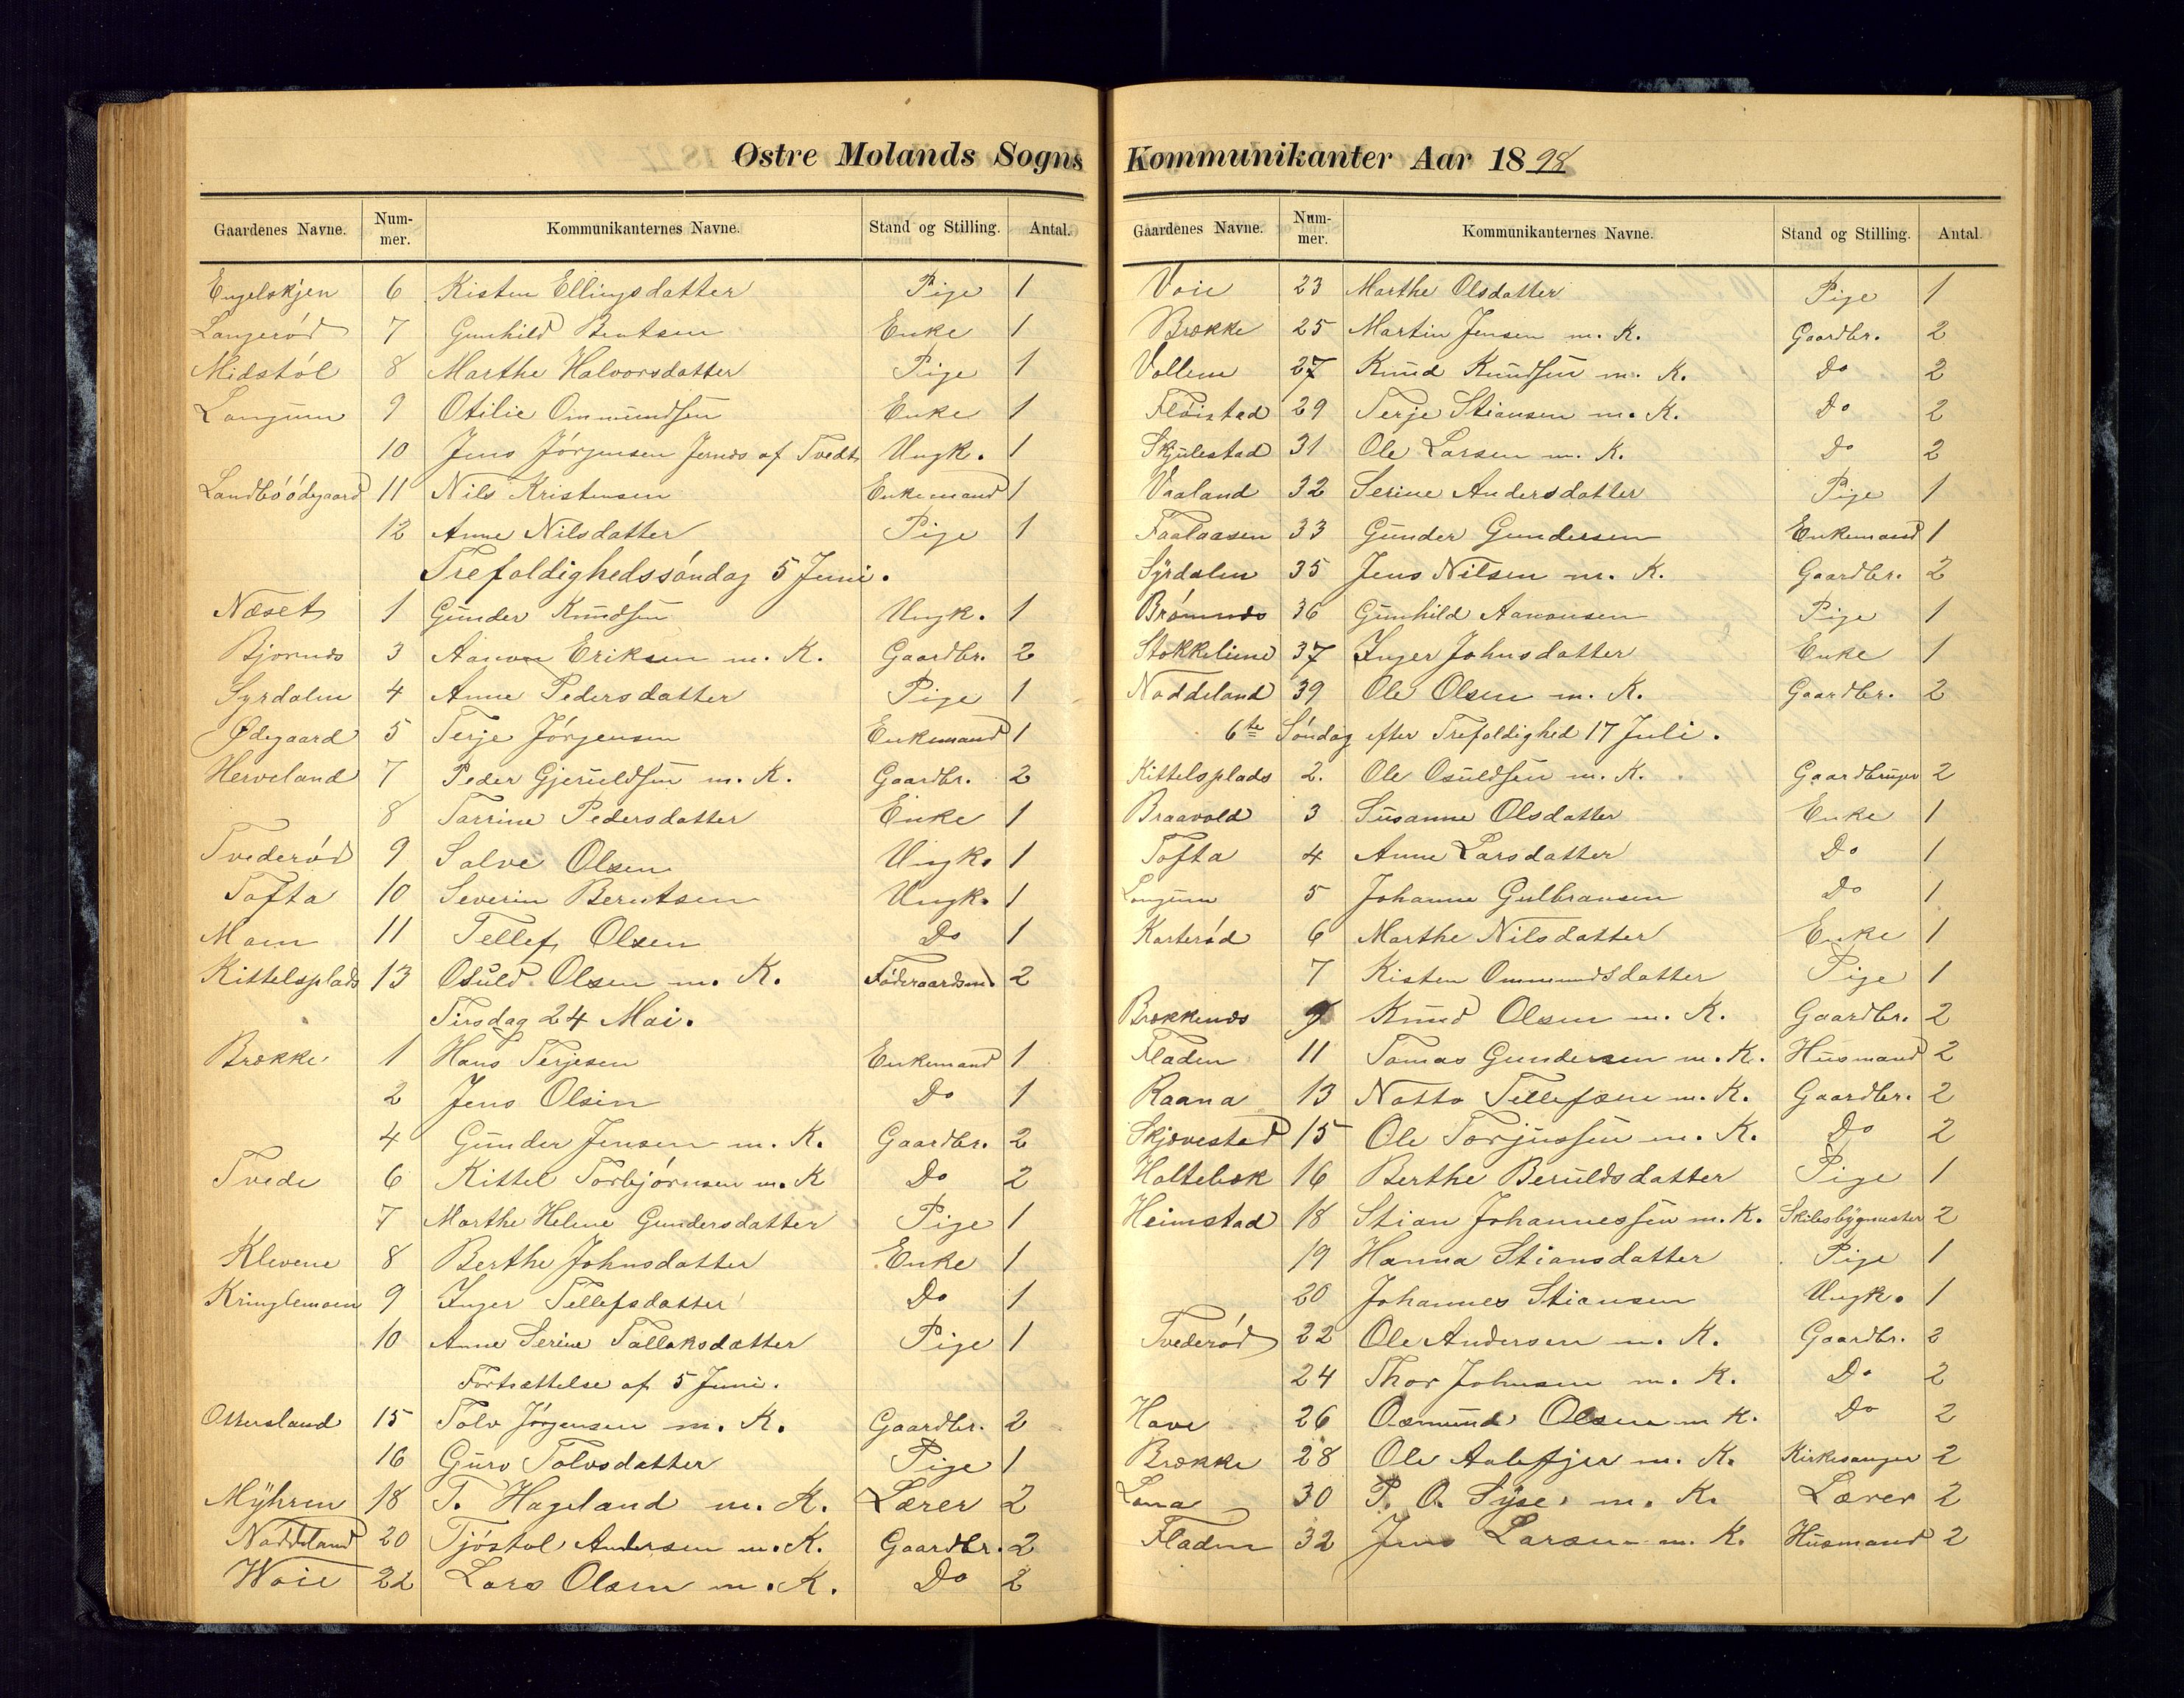 Østre Molands Sogns
Gaardenes Navne. Num-mer. Kommunikanternes Navne. Stand og Stilling. Antal.
Engelskjen 6 Kisten Ellingsdatter Pige 1
Langerød 7 Gunhild Bentsen Enke 1
Midstöl 8 Marthe Halvorsdatter Pige 1
Langum 9 Otilie Ommundsen Enke 1
10 Jens Jörgensen Jernæs af Tvedt Ungk. 1
Landböödegaard 11 Nils Kristensen Enkemand 1
12 Anne Nilsdatter Pige 1
Trefoldighedssöndag 5 Juni.
Næset 1 Gunder Knudsen Ungk. 1
Bjornæs 3 Aanon Eriksen m. K. Gaardbr. 2
Syrdalen 4 Anne Pedersdatter Pige 1
Ødegaard 5 Terje Jörgensen Enkemand 1
Herveland 7 Peder Gjeruldsen m. K. Gaardbr. 2
8 Tarrine Pedersdatter Enke 1
Tvederød 9 Salve Olsen Ungk. 1
Tofta 10 Severin Berntsen Ungk. 1
Moen 11 Tellef Olsen Do 1
Kittelsplads 13 Osuld Olsen m. K. Föderaadsmd 2
Tirsdag 24 Mai.
Brække 1 Hans Terjesen Enkemand 1
2 Jens Olsin Do 1
4 Gunder Jensen m. K. Gaardbr. 2
Tvede 6 Kittel Torbjörnsen m. K Do 2
7 Marthe Helene Gundersdatter Pige 1
Klevene 8 Berthe Johnsdatter Enke 1
Kringlemoen 9 Inger Tellefsdatter Do 1
10 Anne Serine Tallaksdatter Pige 1
Fortsættelse af 5 Juni.
Ottersland 15 Tolv Jörgensen m. K. Gaardbr. 2
16 Guro Tolvsdatter Pige 1
Myhren 18 T. Hageland m. K. Lærer 2
Naddeland 20 Tjöstol Andersen m. K. Gaardbr. 2
Woie 22 Lars Olsen m. K. Do 2
Kommunikanter Aar 1898
Gaardenes Navne. Num-mer. Kommunikanternes Navne. Stand og Stilling. Antal.
Voie 23 Marthe Olsdatter Pige 1
Brække 25 Martin Jensen m. K. Gaardbr. 2
Vollene 27 Knud Knudsen m. K. Do 2
Flöistad 29 Terje Stiansen m. K. Do 2
Skjulestad 31 Ole Larsen m. K. Do 2
Vaaland 32 Serine Andersdatter Pige 1
Faalaasen 33 Gunder Gundersen Enkemand 1
Syrdalen 35 Jens Nilsen m. K. Gaardbr. 2
Brömnæs 36 Gunhild Aanonsen Pige 1
Stokkeliene 37 Inger Johnsdatter Enke 1
Naddeland 39 Ole Olsen m. K. Gaardbr. 2
6te Söndag efter Trefoldighed 17 Juli.
Kittelsplads 2. Ole Osuldsen m. K. Gaardbruger 2
Braavold 3 Susanne Olsdatter Enke 1
Tofta 4 Anne Larsdatter Do 1
Langum 5 Johanne Gulbransen Do 1
Karterød 6 Marthe Nilsdatter Enke 1
7 Kisten Ommundsdatter Pige 1
Brækkenæs 9 Knud Olsen m. K. Gaardbr. 2
Fladen 11 Tomas Gundersen m. K. Husmand 2
Raana 13 Natto Tellefsen m. K. Gaardbr. 2
Skjævestad 15 Ole Torjussen m. K. Do 2
Holtebæk 16 Berthe Beruldsdatter Pige 1
Heimstad 18 Stian Johannessen m. K. Skibsbygmester 2
19 Hanna Stiansdatter Pige 1
20 Johannes Stiansen Ungk. 1
Tvederød 22 Ole Andersen m. K. Gaardbr. 2
24 Thor Johnsen m. K. Do 2
Have 26 Osmund Olsen m K. Do 2
Brække 28 Ole Aalefjer m. K. Kirkesanger 2
Lona 30 P. O. Syse m. K. Lærer 2
Fladen 32 Jens Larsen m. K. Husmand 2